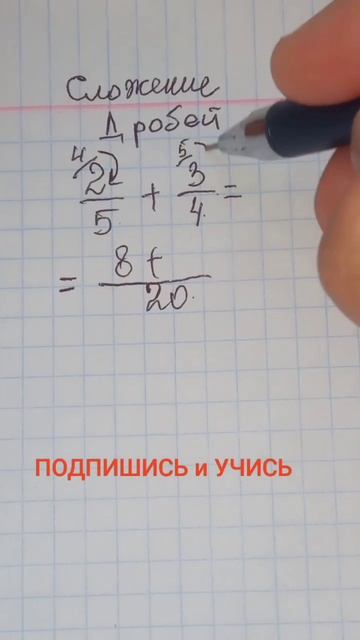 Сложение
Дробей
4 5
2 3
— + — =
5 4
= 8 +
20
ПОДПИШИСЬ и УЧИСЬ